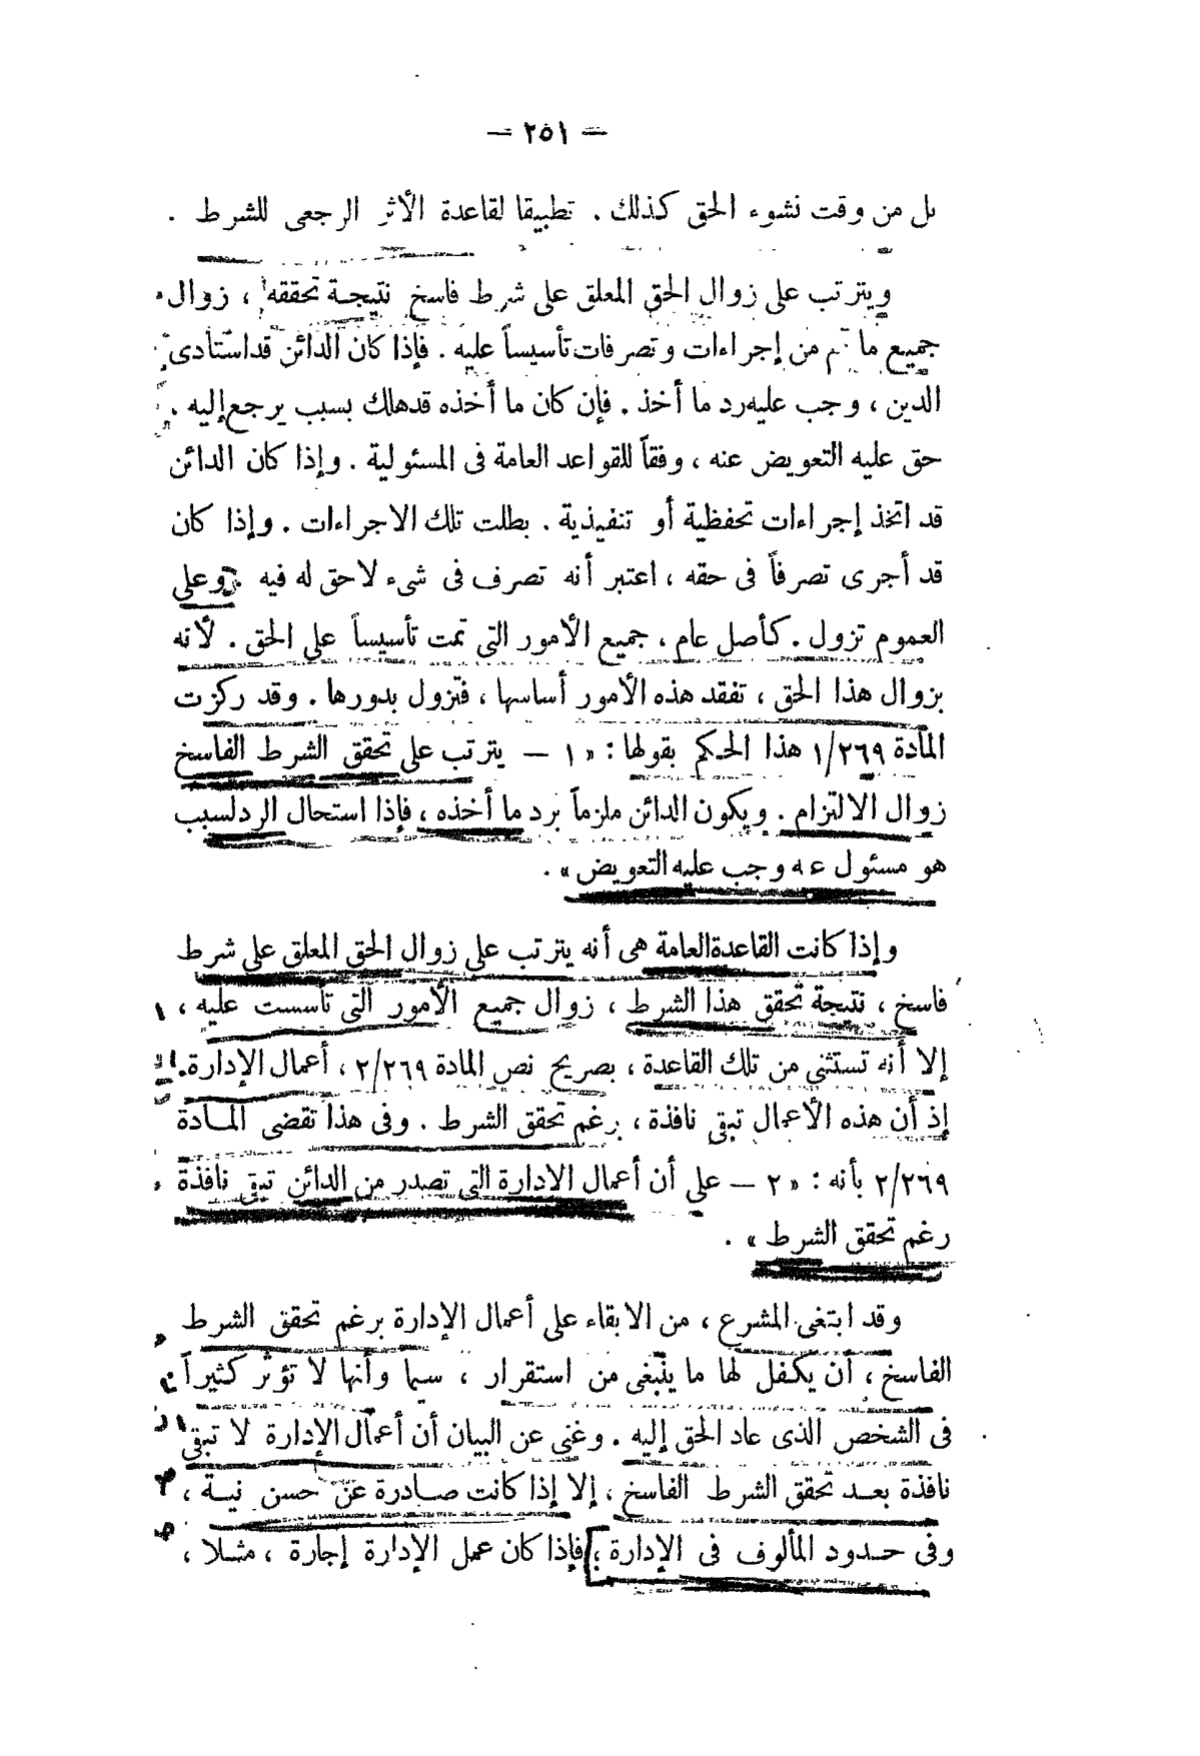 — ٢٥١ —
بل من وقت نشوء الحق كذلك . تطبيقا لقاعدة الأثر الرجعى للشرط .
ويترتب على زوال الحق المعلق على شرط فاسخ نتيجة تحققه ، زوال
جميع ما تم من إجراءات وتصرفات تأسيساً عليه . فإذا كان الدائن قد استأدى
الدين ، وجب عليه رد ما أخذ . فإن كان ما أخذه قد هلك بسبب يرجع إليه .
حق عليه التعويض عنه ، وفقاً للقواعد العامة فى المسئولية . وإذا كان الدائن
قد اتخذ إجراءات تحفظية أو تنفيذية . بطلت تلك الاجراءات . وإذا كان
قد أجرى تصرفاً فى حقه ، اعتبر أنه تصرف فى شىء لا حق له فيه . وعلى
العموم تزول . كأصل عام ، جميع الأمور التى تمت تأسيساً على الحق . لأنه
بزوال هذا الحق ، تفقد هذه الأمور أساسها ، فتزول بدورها . وقد ركزت
المادة ١/٢٦٩ هذا الحكم بقولها : « ١ — يترتب على تحقق الشرط الفاسخ
زوال الالتزام . ويكون الدائن ملزماً برد ما أخذه ، فإذا استحال الرد لسبب
هو مسئول عنه وجب عليه التعويض » .
وإذا كانت القاعدة العامة هى أنه يترتب على زوال الحق المعلق على شرط
فاسخ ، نتيجة تحقق هذا الشرط ، زوال جميع الأمور التى تأسست عليه ،
إلا أنه تستثنى من تلك القاعدة ، بصريح نص المادة ٢/٢٦٩ ، أعمال الإدارة .
إذ أن هذه الأعمال تبقى نافذة ، برغم تحقق الشرط . وفى هذا تقضى المادة
٢/٢٦٩ بأنه : « ٢ — على أن أعمال الادارة التى تصدر من الدائن تبقى نافذة
رغم تحقق الشرط » .
وقد ابتغى المشرع ، من الابقاء على أعمال الإدارة برغم تحقق الشرط
الفاسخ ، أن يكفل لها ما ينبغى من استقرار ، سيما وأنها لا تؤثر كثيراً
فى الشخص الذى عاد الحق إليه . وغنى عن البيان أن أعمال الإدارة لا تبقى
نافذة بعد تحقق الشرط الفاسخ ، إلا إذا كانت صادرة عن حسن نية ،
وفى حدود المألوف فى الإدارة ؛ فإذا كان عمل الإدارة إجارة ، مثلا ،